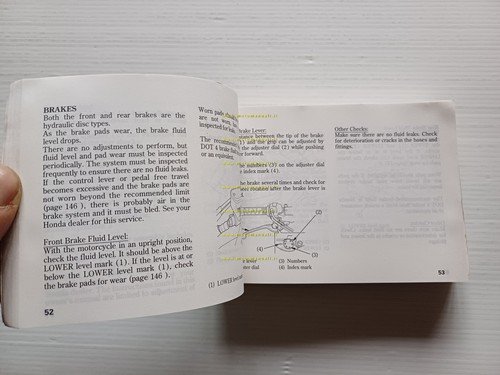 BRAKES
Both the front and rear brakes are the
hydraulic disc types.
As the brake pads wear, the brake fluid
level drops.
There are no adjustments to perform, but
fluid level and pad wear must be inspected
periodically. The system must be inspected
frequently to ensure there are no fluid leaks.
If the control lever or pedal free travel
becomes excessive and the brake pads are
not worn beyond the recommended limit
(page 146 ), there is probably air in the
brake system and it must be bled. See your
Honda dealer for this service.
Front Brake Fluid Level:
With the motorcycle in an upright position,
check the fluid level. It should be above the
LOWER level mark (1). If the level is at or
below the LOWER level mark (1), check
the brake pads for wear (page 146 ).
52
Worn pads
are not worn,
inspected for
The recommended
DOT 4 brake
or an equivalent.
(1) LOWER level
Brake Lever:
between the tip of the brake
(1) and the grip can be adjusted by
the adjuster dial (2) while pushing
forward.
numbers (3) on the adjuster dial
index mark (4).
the brake several times and check for
after the brake lever is
(2)
(4)
(3)
lever
dial
(3) Numbers
(4) Index mark
Other Checks:
Make sure there are no fluid leaks. Check
for deterioration or cracks in the hoses and
fittings.
53